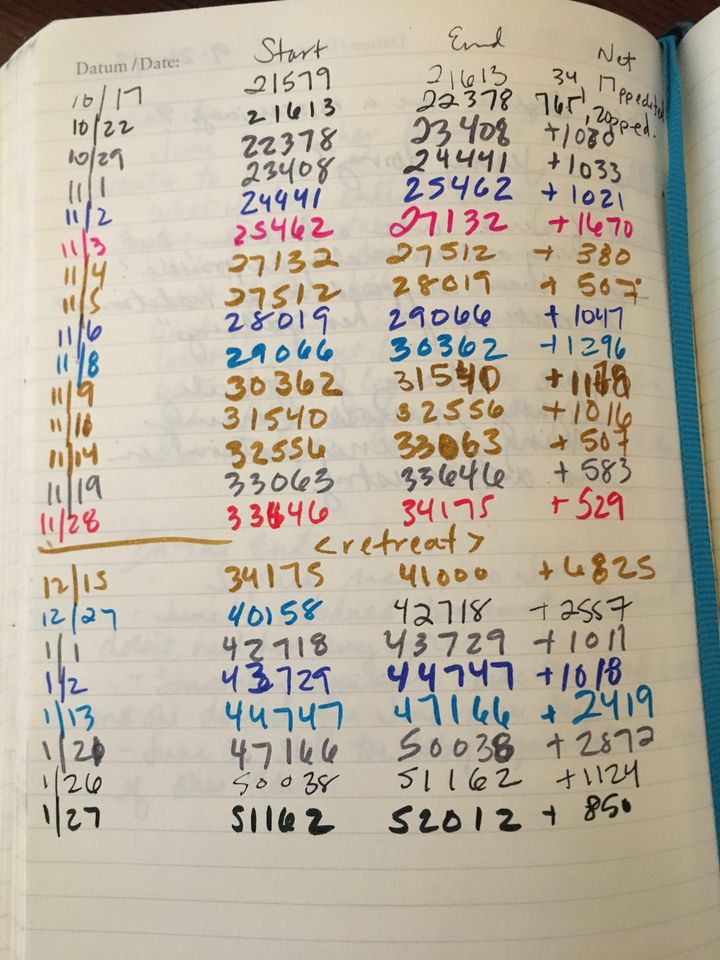 Datum / Date: Start End Net
10/17 21579 21613 34, 17pp edited
10/22 21613 22378 765, 20pp ed.
10/29 22378 23408 +1030
11/1 23408 24441 +1033
11/2 24441 25462 +1021
11/3 25462 27132 +1670
11/4 27132 27512 + 380
11/5 27512 28019 + 507
11/6 28019 29066 + 1047
11/8 29066 30362 +1296
11/9 30362 31540 +1178
11/10 31540 32556 +1016
11/14 32556 33063 + 507
11/19 33063 33646 + 583
11/28 33646 34175 + 529
<retreat>
12/15 34175 41000 +6825
12/27 40158 42718 +2557
1/1 42718 43729 +1011
1/2 43729 44747 +1018
1/13 44747 47166 + 2419
1/21 47166 50038 + 2872
1/26 50038 51162 +1124
1/27 51162 52012 + 850